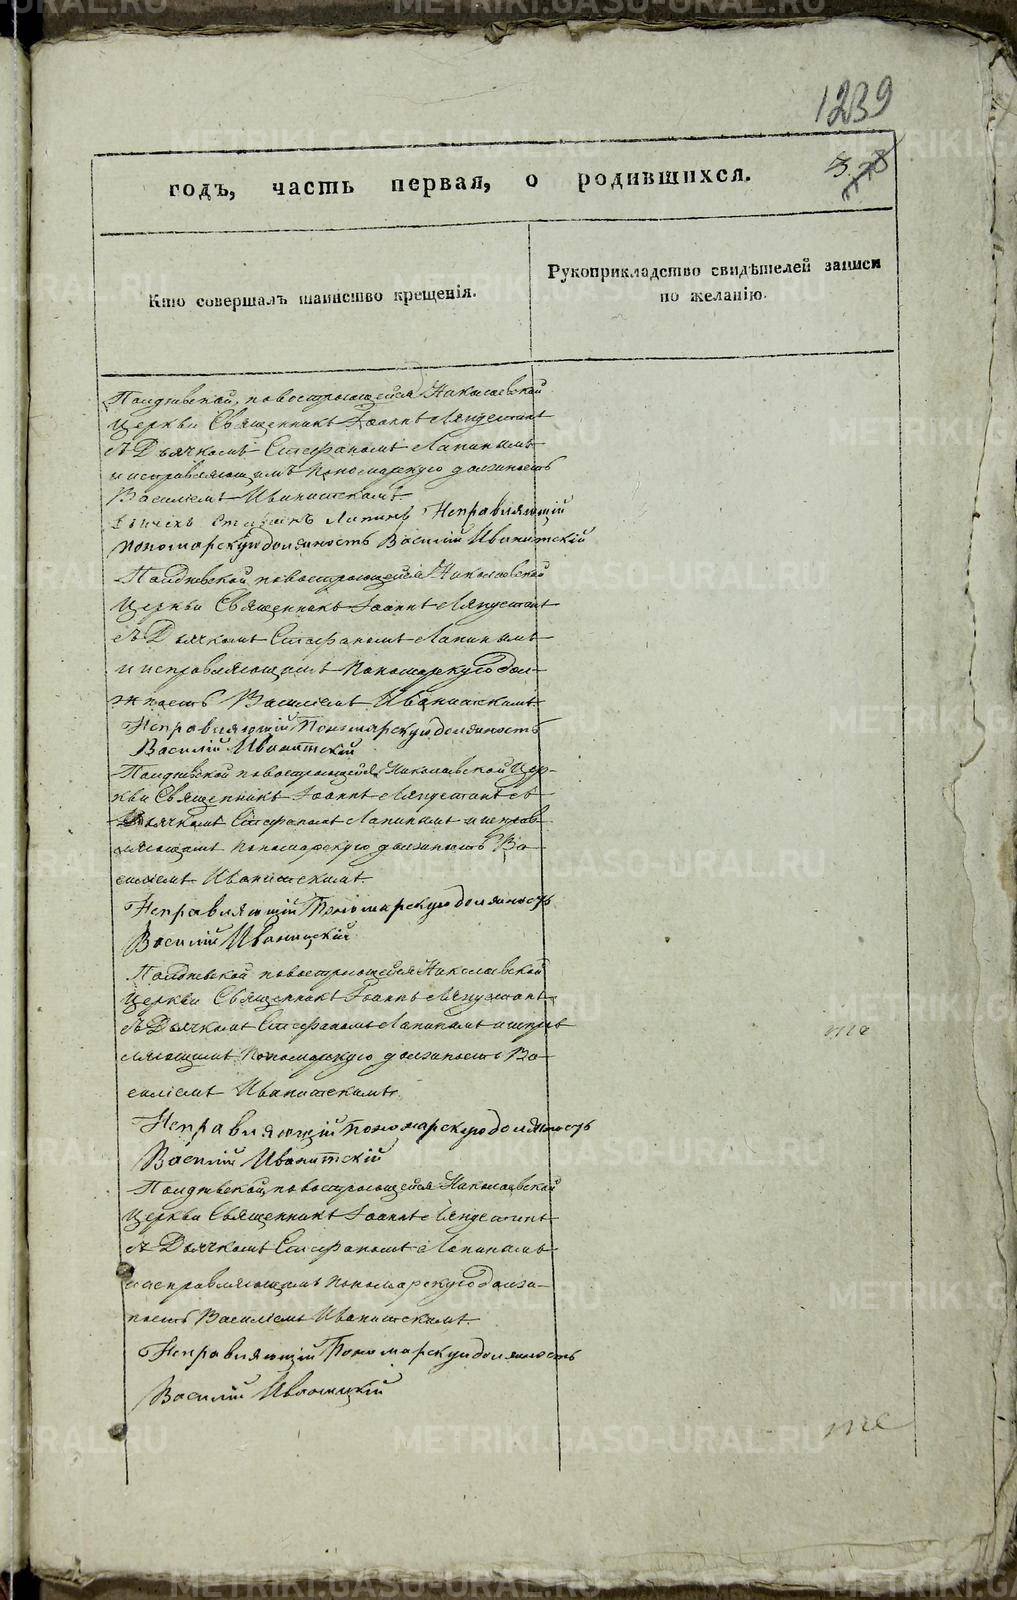 1239
годъ, часть первая, о родившихся.
3.
Кто совершалъ таинство крещенія.
Рукоприкладство свидѣтелей записи
по желанію.
новостроющейся Николаевской
Церкви Священникъ Іоаннъ Ляпустинъ
съ Дьячкомъ Стефаномъ Лапинымъ
и исправляющимъ Пономарскую должность
Василіемъ Иваницкимъ
Дьячекъ Стефанъ Лапинъ Исправляющій
пономарскую должность Василій Иваницкій
новостроющейся Николаевской
Церкви Священникъ Іоаннъ Ляпустинъ
съ Дьячкомъ Стефаномъ Лапинымъ
и исправляющимъ Пономарскую дол-
жность Василіемъ Иваницкимъ
Исправляющій Пономарскую должность
Василій Иваницкій
новостроющейся Николаевской Цер-
кви Священникъ Іоаннъ Ляпустинъ съ
Дьячкомъ Стефаномъ Лапинымъ и исправ-
ляющимъ Пономарскую должность Ва-
силіемъ Иваницкимъ.
Исправляющій Пономарскую должность
Василій Иваницкій
новостроющейся Николаевской
Церкви Священникъ Іоаннъ Ляпустинъ
съ Дьячкомъ Стефаномъ Лапинымъ и исправ
ляющимъ Пономарскую должность Ва-
силіемъ Иваницкимъ.
Исправляющій Пономарскую должность
Василій Иваницкій
новостроющейся Николаевской
Церкви Священникъ Іоаннъ Ляпустинъ
съ Дьячкомъ Стефаномъ Лапинымъ
и исправляющимъ Пономарскую долж-
ность Василіемъ Иваницкимъ.
Исправляющій Пономарскую должность
Василій Иваницкій
METRIKI.GASO-URAL.RU